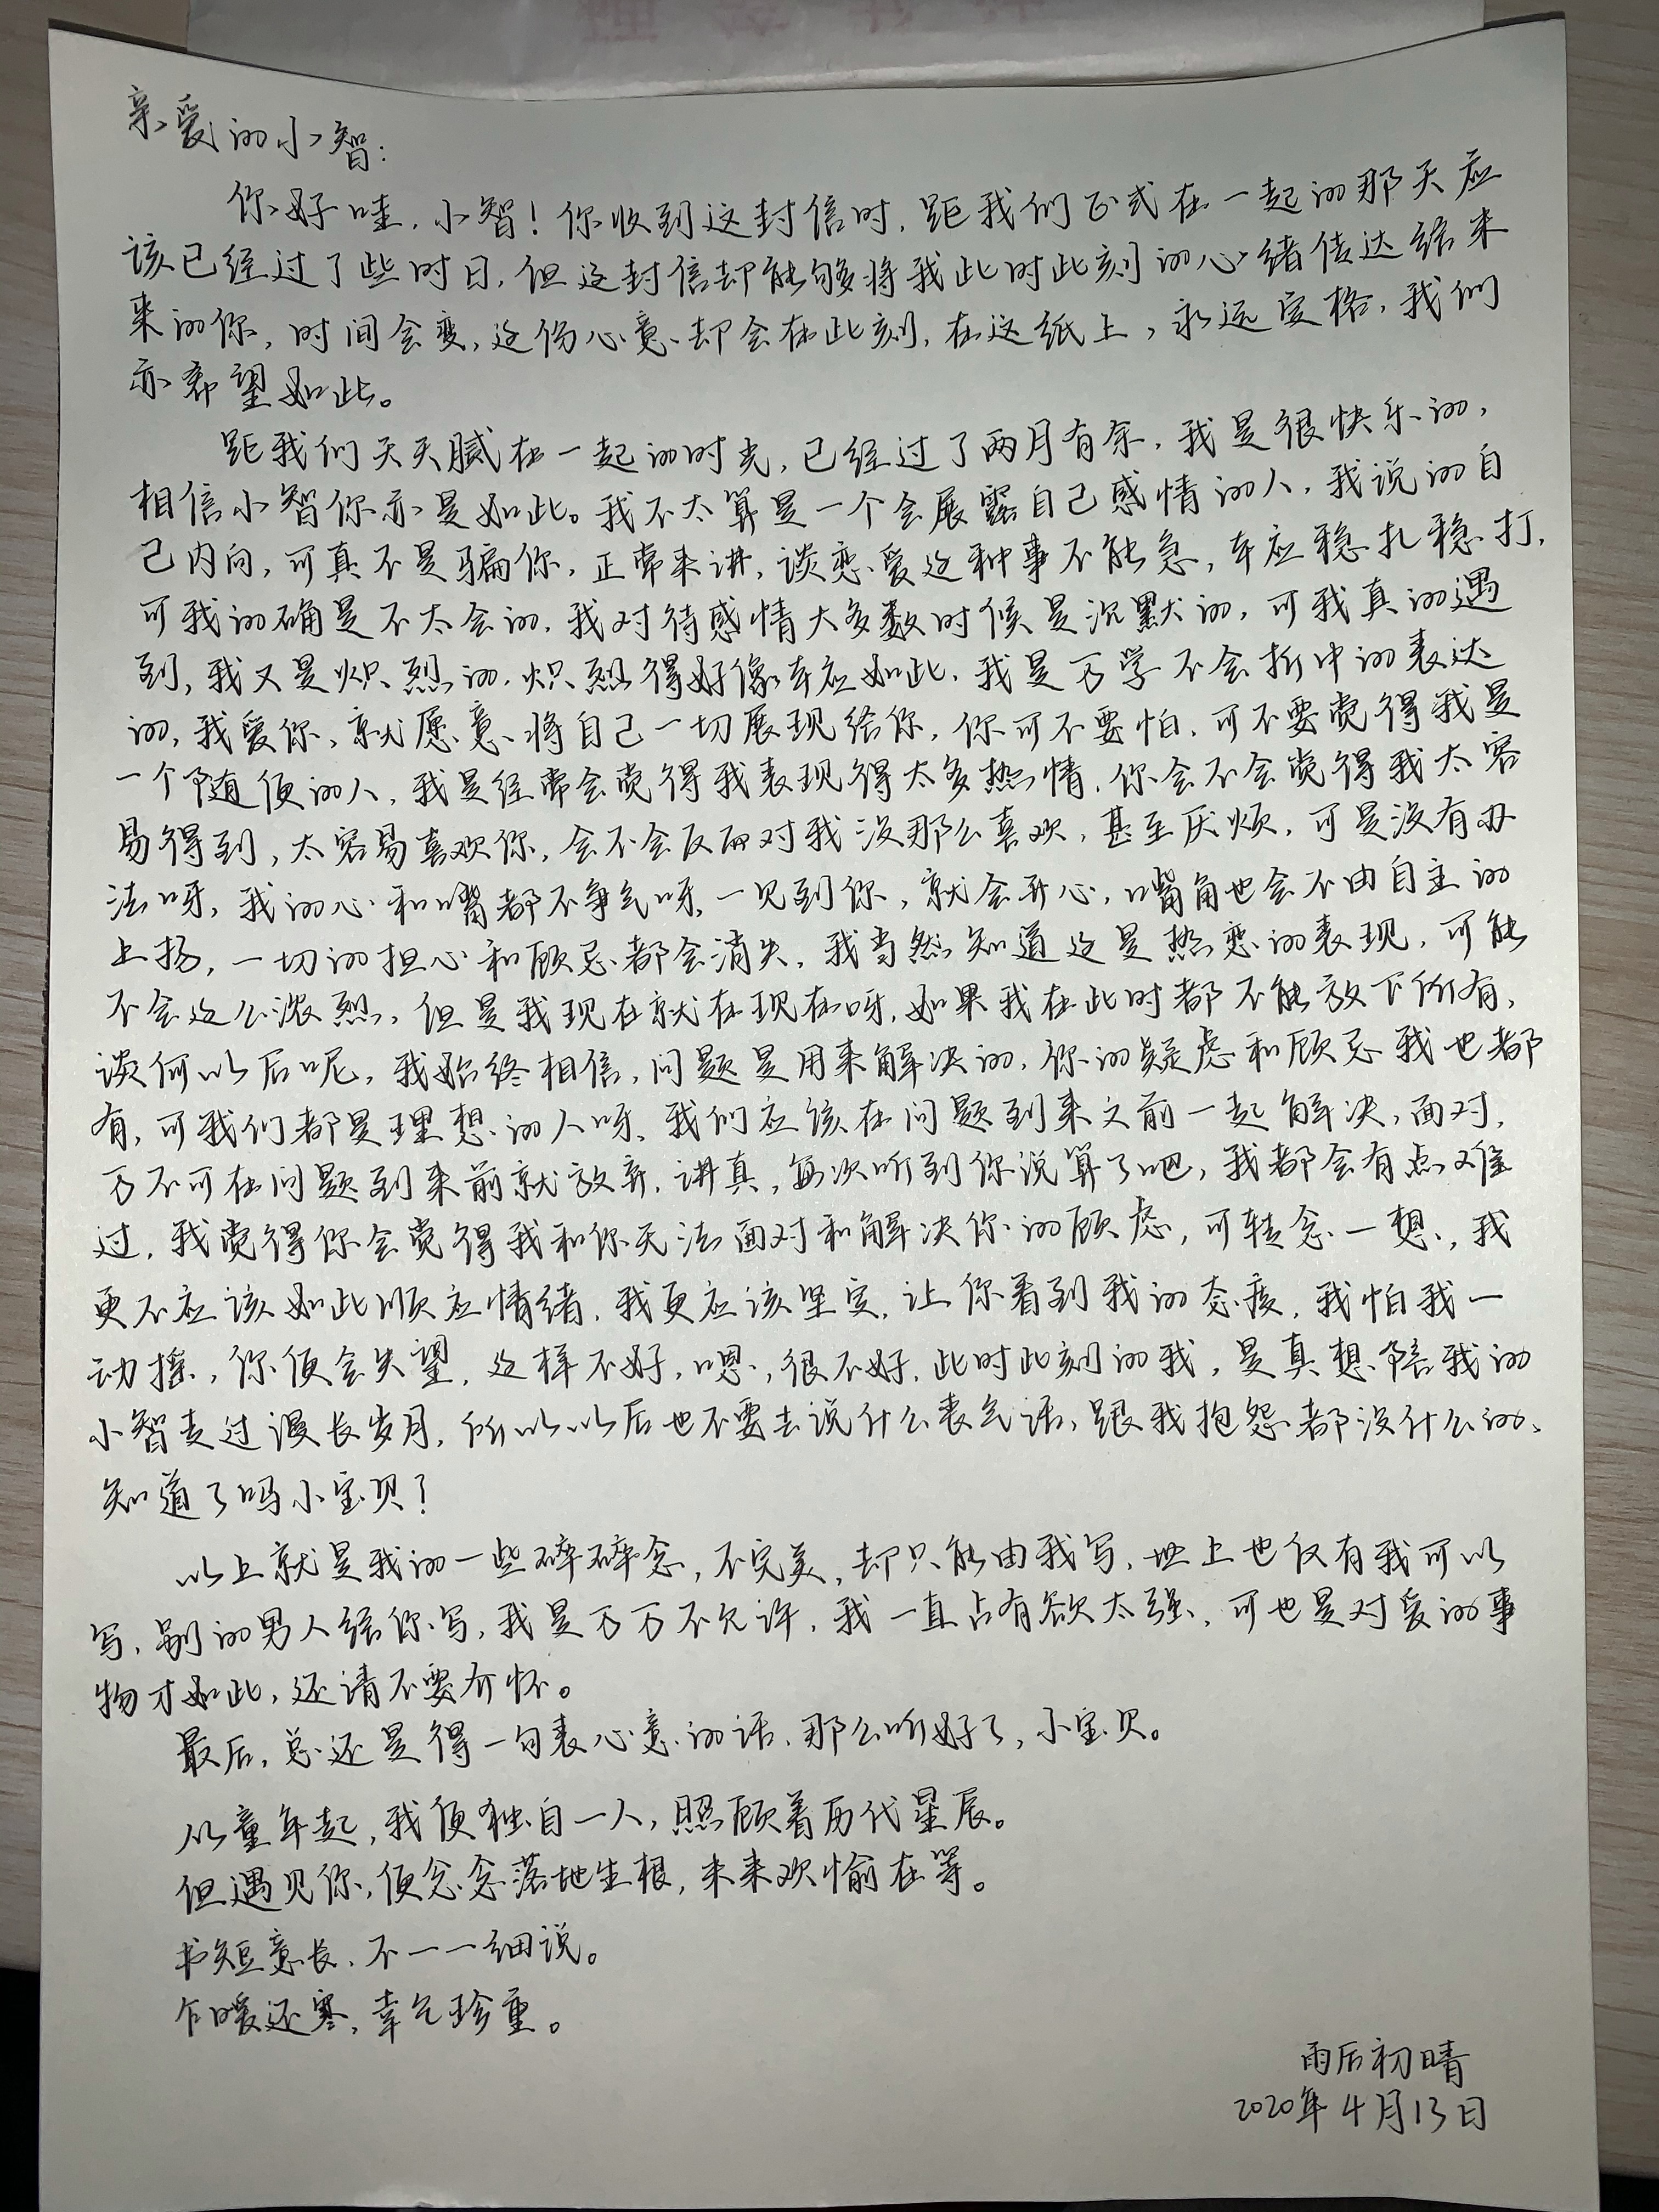 亲爱的小智:
你好哇,小智!你收到这封信时,距我们正式在一起的那天应
该已经过了些时日,但这封信却能够将我此时此刻的心绪传达给未
来的你,时间会变,这份心意却会在此刻,在这纸上,永远定格,我们
亦希望如此。
距我们天天腻在一起的时光,已经过了两月有余,我是很快乐的,
相信小智你亦是如此。我不太算是一个会展露自己感情的人,我说的自
己内向,可真不是骗你,正常来讲,谈恋爱这种事不能急,本应稳扎稳打,
可我的确是不太会的,我对待感情大多数时候是沉默的,可我真的遇
到,我又是炽烈的,炽烈得好像本应如此,我是万学不会折中的表达
的,我爱你,就愿意将自己一切展现给你,你可不要怕,可不要觉得我是
一个随便的人,我是经常会觉得我表现得太多热情,你会不会觉得我太容
易得到,太容易喜欢你,会不会反而对我没那么喜欢,甚至厌烦,可是没有办
法呀,我的心和嘴都不争气呀,一见到你,就会开心,嘴角也会不由自主的
上扬,一切的担心和顾忌都会消失,我当然知道这是热恋的表现,可能
不会这么浓烈,但是我现在就在现在呀,如果我在此时都不能放下所有,
谈何以后呢,我始终相信,问题是用来解决的,你的疑虑和顾忌我也都
有,可我们都是理想的人呀,我们应该在问题到来之前一起解决,面对,
万不可在问题到来前就放弃,讲真,每次听到你说算了吧,我都会有点难
过,我觉得你会觉得我和你无法面对和解决你的顾虑,可转念一想,我
更不应该如此顺应情绪,我更应该坚定,让你看到我的态度,我怕我一
动摇,你便会失望,这样不好,嗯,很不好,此时此刻的我,是真想陪我的
小智走过漫长岁月,所以以后也不要去说什么丧气话,跟我抱怨都没什么的,
知道了吗小宝贝?
以上就是我的一些碎碎念,不完美,却只能由我写,世上也仅有我可以
写,别的男人给你写,我是万万不允许,我一直占有欲太强,可也是对爱的事
物才如此,还请不要介怀。
最后,总还是得一句表心意的话,那么听好了,小宝贝。
从童年起,我便独自一人,照顾着历代星辰。
但遇见你,便念念落地生根,未来欢愉在等。
书短意长,不一一细说。
乍暖还寒,幸乞珍重。
雨后初晴
2020年4月13日